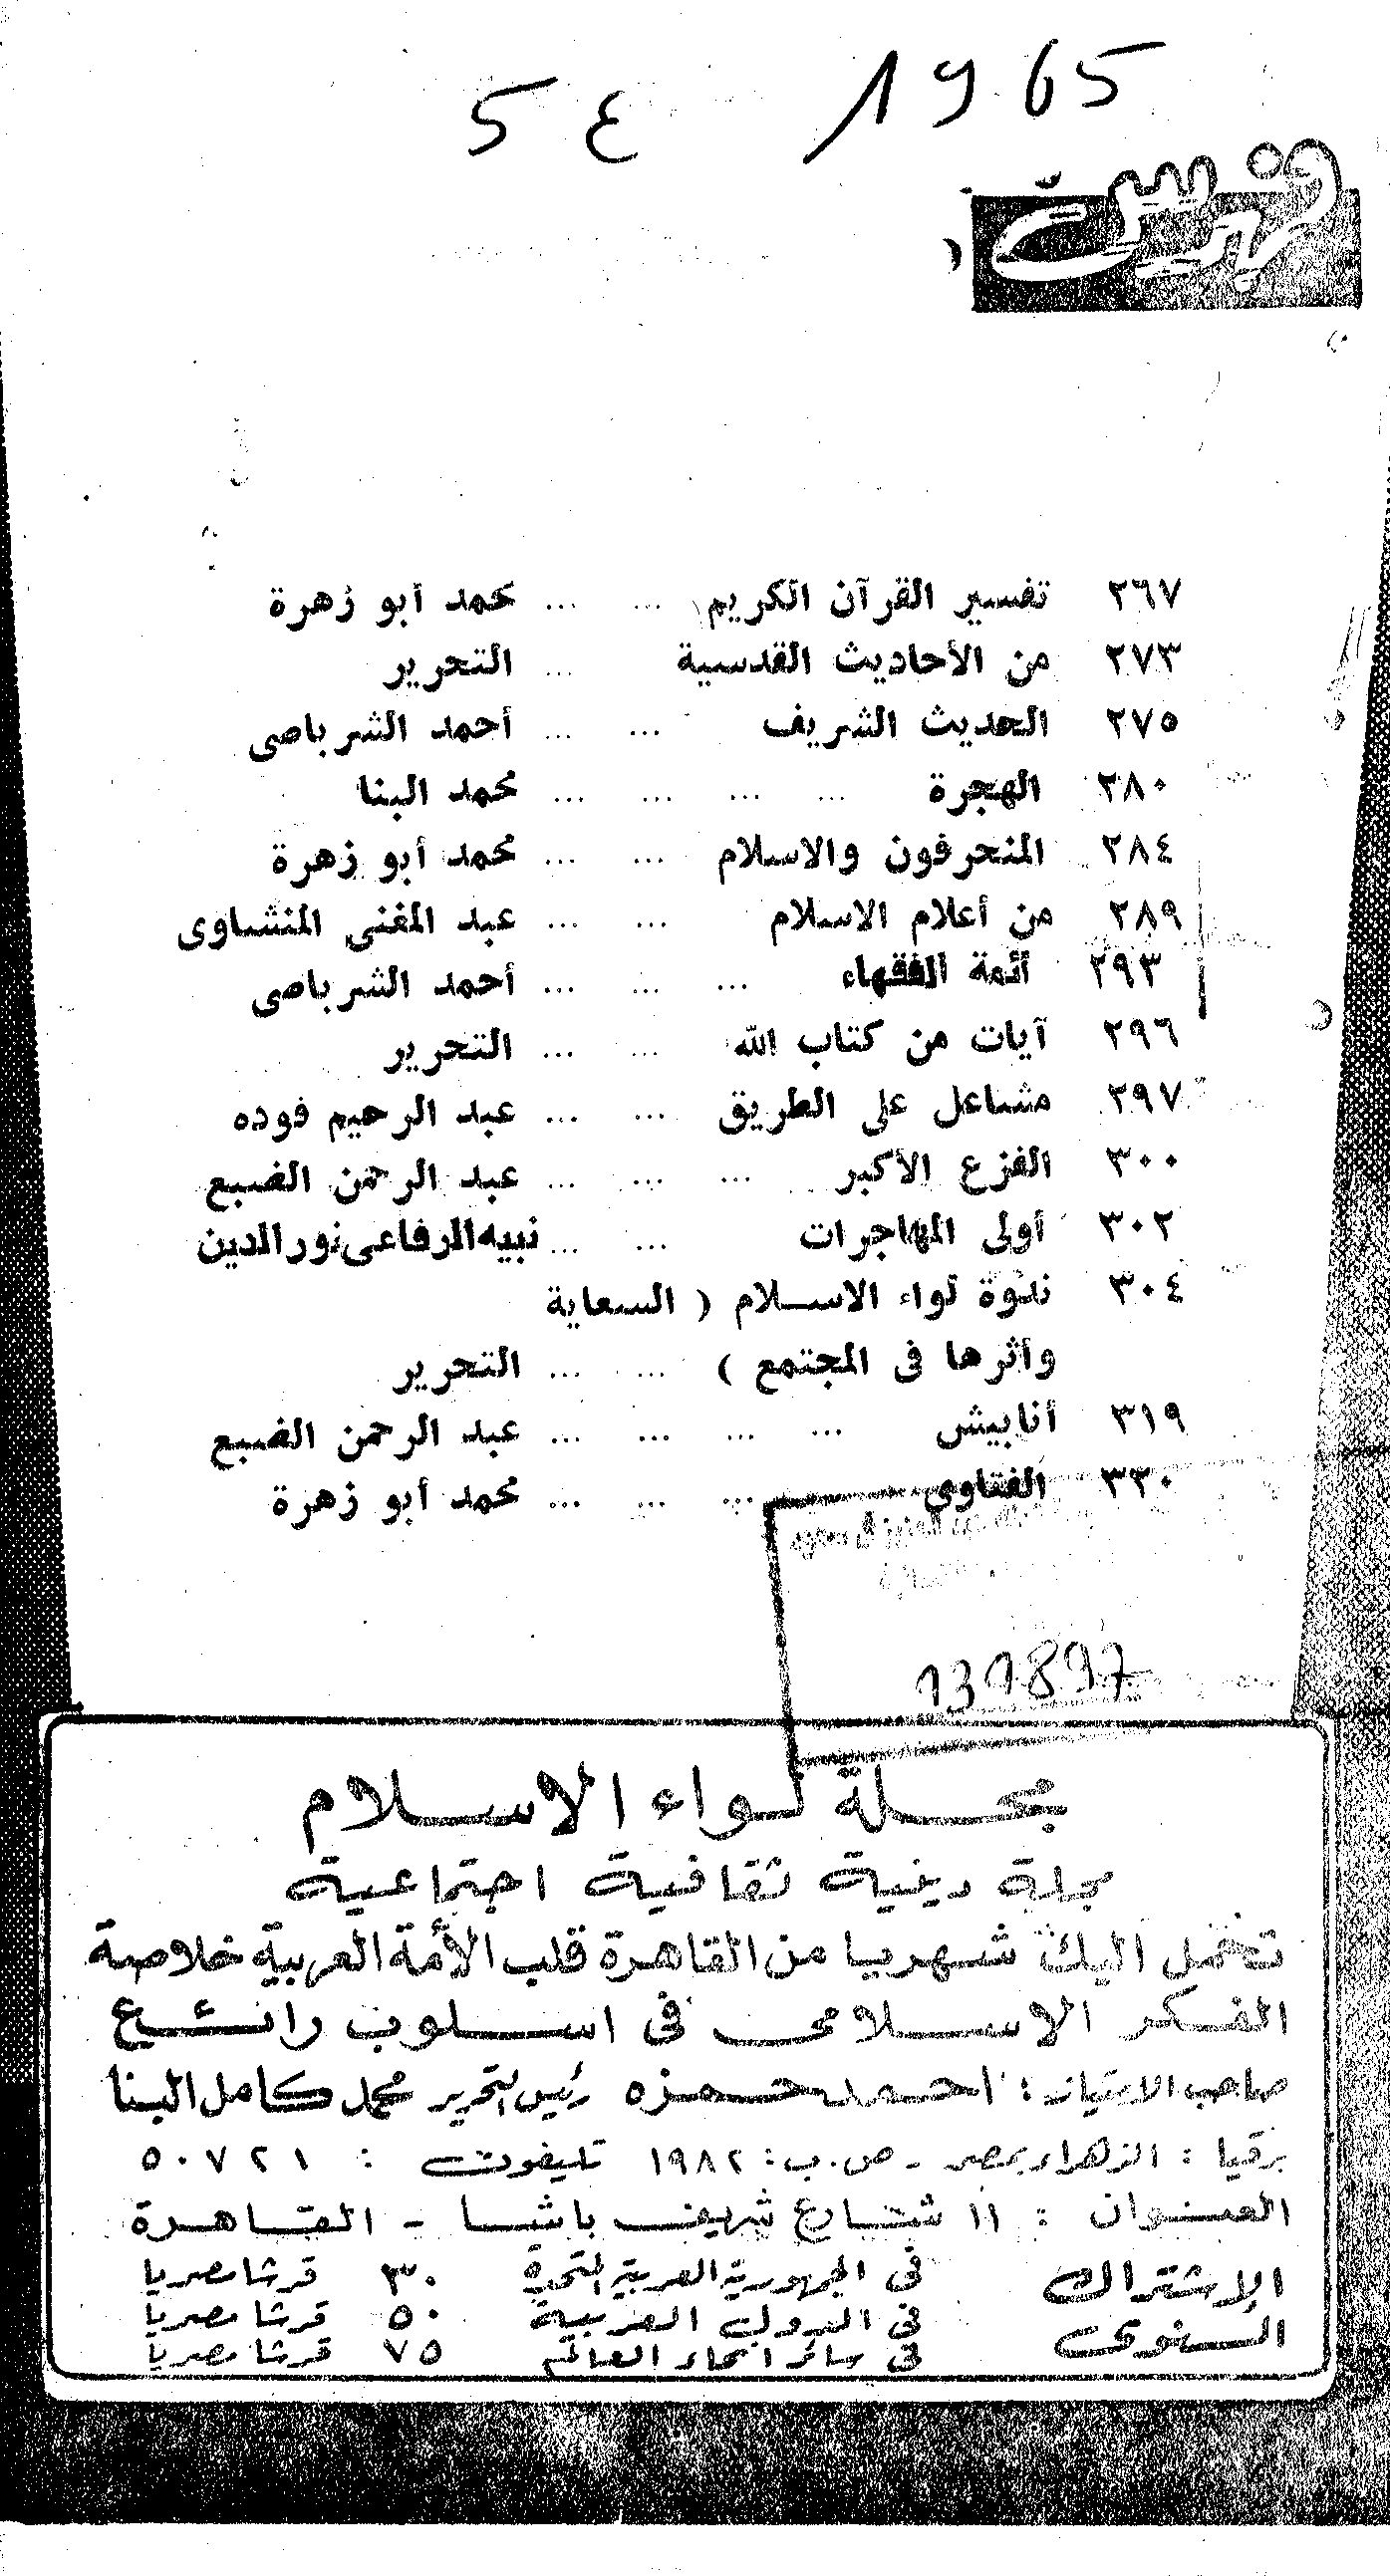 1965 ع 5
فهرست
٢٦٧ تفسير القرآن الكريم ... ... محمد أبو زهرة
٢٧٣ من الأحاديث القدسية ... التحرير
٢٧٥ الحديث الشريف ... ... أحمد الشرباصى
٢٨٠ الهجرة ... ... ... ... محمد البنا
٢٨٤ المنحرفون والاسلام ... ... محمد أبو زهرة
٢٨٩ من أعلام الاسلام ... ... عبد المغنى المنشاوى
٢٩٣ أئمة الفقهاء ... ... ... أحمد الشرباصى
٢٩٦ آيات من كتاب الله ... ... التحرير
٢٩٧ مشاعل على الطريق ... ... عبد الرحيم فوده
٣٠٠ الفزع الأكبر ... ... ... عبد الرحمن الضبع
٣٠٢ أولى المهاجرات ... ... نبيه الرفاعى نور الدين
٣٠٤ ندوة لواء الاسلام ( السعاية
وأثرها فى المجتمع ) ... ... التحرير
٣١٩ أنابيش ... ... ... ... عبد الرحمن الضبع
٣٣٠ الفتاوى ... ... ... محمد أبو زهرة
131897
مجلة لواء الاسلام
مجلة دينية ثقافية اجتماعية
تحمل اليك شهريا من القاهرة قلب الأمة العربية خلاصة
الفكر الاسلامى فى اسلوب رائع
صاحب الامتياز : احمد حمزه رئيس التحرير محمد كامل البنا
برقيا : الزهراء بمصر - ص . ب : ١٩٨٢ تليفون : ٥٠٧٢١
العنوان : ١١ شارع شريف باشا - القاهرة
الإشتراك فى الجمهورية العربية المتحدة ٣٠ قرشا مصريا
السنوى فى الدول العربية ٥٠ قرشا مصريا
فى سائر انحاء العالم ٧٥ قرشا مصريا